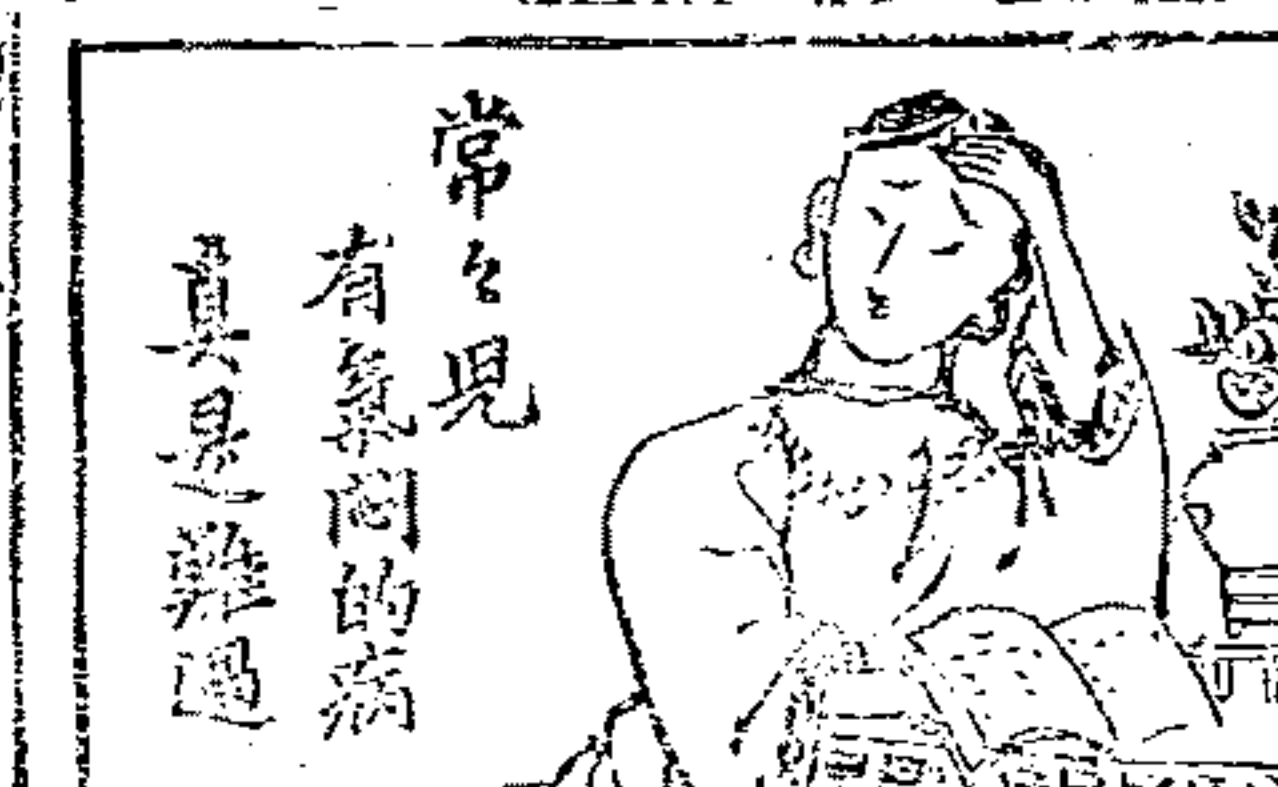 常々見
有氣悶的病
真是難過